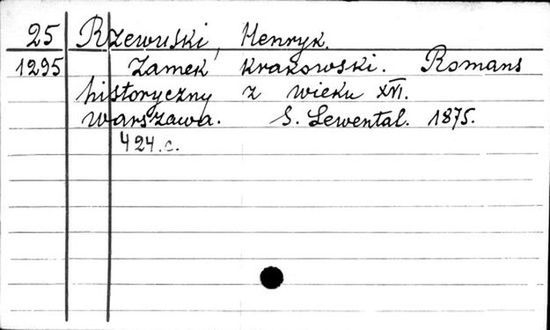 25 Rzewuski, Henryk.
1295 Zamek krakowski. Romans
historyczny z wieku XVI.
Warszawa. S. Lewental. 1875.
424.c.